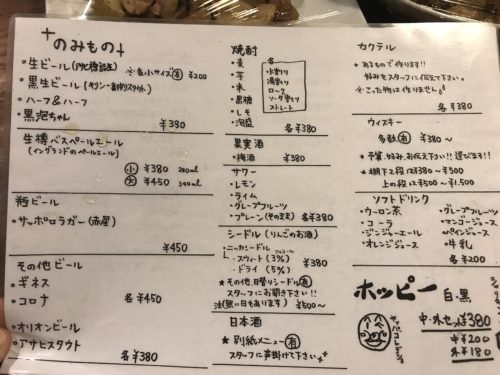 のみもの
・生ビール
※各小サイズ 有 ¥200
・黒生ビール
・ハーフ&ハーフ
・黒泡ちゃん
¥380
生樽バスペールエール
(イングランドのペールエール)
小 ¥380
大 ¥450
瓶ビール
・サッポロラガー(赤星)
¥450
その他ビール
・ギネス
・コロナ
各¥450
・オリオンビール
・アサヒスタウト
各¥380
焼酎
・麦
・芋
・米
・黒糖
・しそ
・泡盛
各
・水割り
・湯割り
・ロック
・ソーダ割り
・ストレート
各¥380
果実酒
・梅酒 ¥380
サワー
・レモン
・ライム
・グレープフルーツ
・プレーン(そのまま) 各¥380
シードル(りんごのお酒)
・ニッカシードル アルコール
・スウィート (3%)
・ドライ (5%)
¥380
★その他、日替りシードル有
スタッフにお聞き下さい!!
(無い日もあります) ¥500〜
日本酒
★別紙メニュー有
スタッフに声掛けて下さい
カクテル
★あるもので作ります!!
好みをスタッフに伝えて下さい。
※こった物は作りません。
各¥380
ウィスキー
・多数有 ¥380〜
★予算、好み、お伝え下さい!! 選びます!!
★棚下2段は¥380〜¥500
上の段は¥500〜¥1,500
ソフトドリンク
・ウーロン茶
・コーラ
・ジンジャーエール
・オレンジジュース
・グレープフルーツ
・マンゴージュース
・パインジュース
・牛乳
各¥200
ホッピー 白・黒
中・外セット¥380
中¥200
外¥180